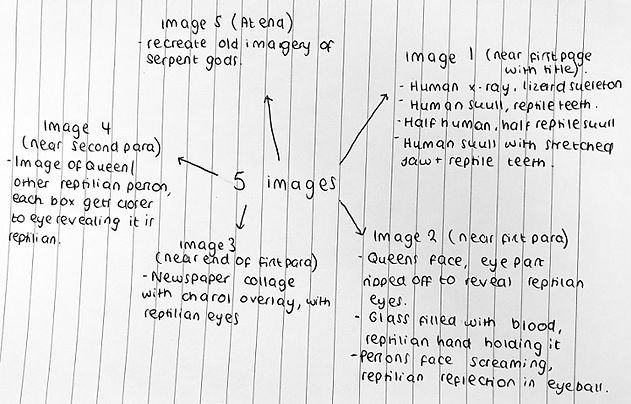 Image 5 (At end)
- recreate old imagery of
serpent gods.
Image 1 (near first page
with title).
- Human x-ray, lizard skeleton
- Human skull, reptile teeth.
- Half human, half reptile skull
- Human skull with stretched
jaw + reptile teeth.
Image 4
(near second para)
- Image of Queen/
other reptilian person,
each box gets closer
to eye revealing it is
reptilian.
5 images
Image 3
(near end of first para)
- Newspaper collage
with overlay, with
reptilian eyes
Image 2 (near first para)
- Queens face, eye part
ripped off to reveal reptilian
eyes.
- Glass filled with blood,
reptilian hand holding it
- Persons face screaming,
reptilian reflection in eyeball.